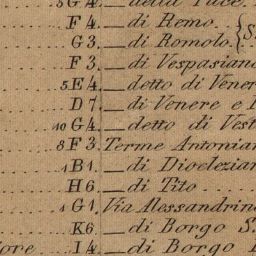 5 G 4. — della Pace.
F 4. — di Remo.
G 3. — di Romolo.
F 3. — di Vespasiano
5 E 4. — detto di Vener
D 7. — di Venere e
10 G 4. — detto di Vest
8 F 3. Terme Antonian
1 B 1. — di Dioclezian
H 6. — di Tito
4 G 1. Via Alessandrin
K 6. — di Borgo S.
ore I 4. — di Borgo